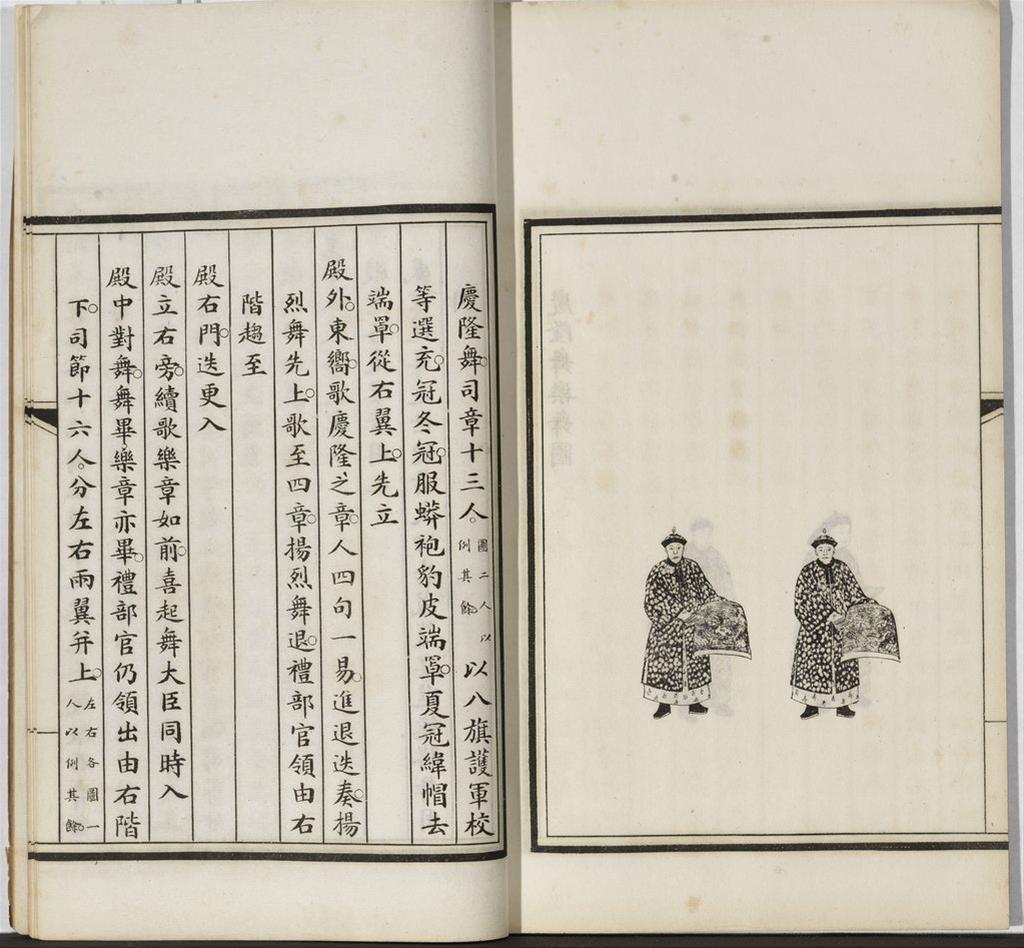 慶隆舞。司章十三人。圖二人以例其餘。以八旗護軍校
等選充。冠冬冠。服蟒袍豹皮端罩。夏冠緯帽去
端罩。從右翼上。先立
殿外。東嚮。歌慶隆之章。人四句一易。進退迭奏。揚
烈舞先上。歌至四章。揚烈舞退。禮部官領由右
階趨至
殿右門。迭更入
殿立右旁。續歌樂章如前。喜起舞大臣同時入
殿中對舞。舞畢樂章亦畢。禮部官仍領出由右階
下。司節十六人。分左右兩翼并上。左右各圖一人以例其餘。